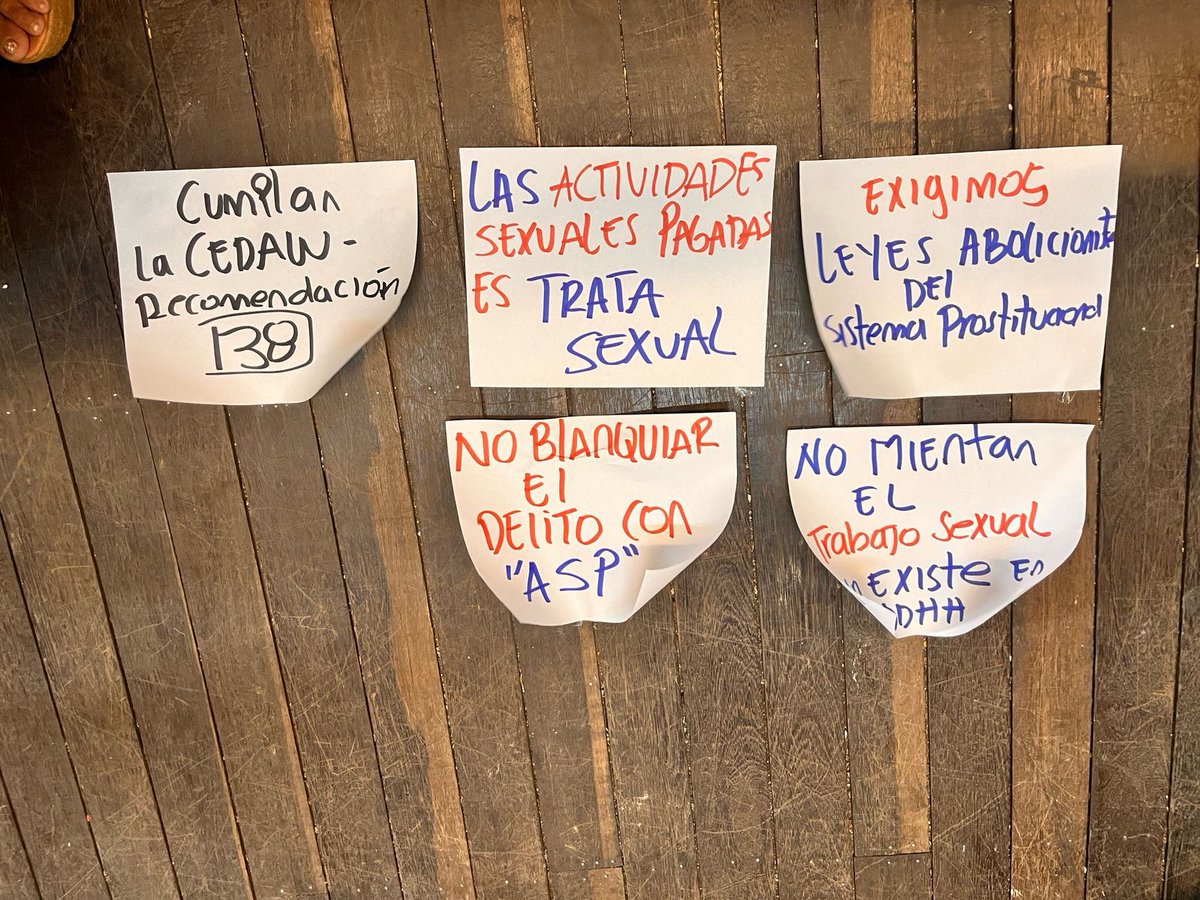 Cumplan
la CEDAW-
recomendación
138
LAS ACTIVIDADES
SEXUALES PAGADAS
ES TRATA
SEXUAL
EXIGIMOS
LEYES ABOLICIONISTAS
DEl
Sistema Prostitucional
NO BlANQUIAR
El
DELITO CON
"ASP"
NO MIENTAN
EL
Trabajo Sexual
EXISTE EN
DDHH